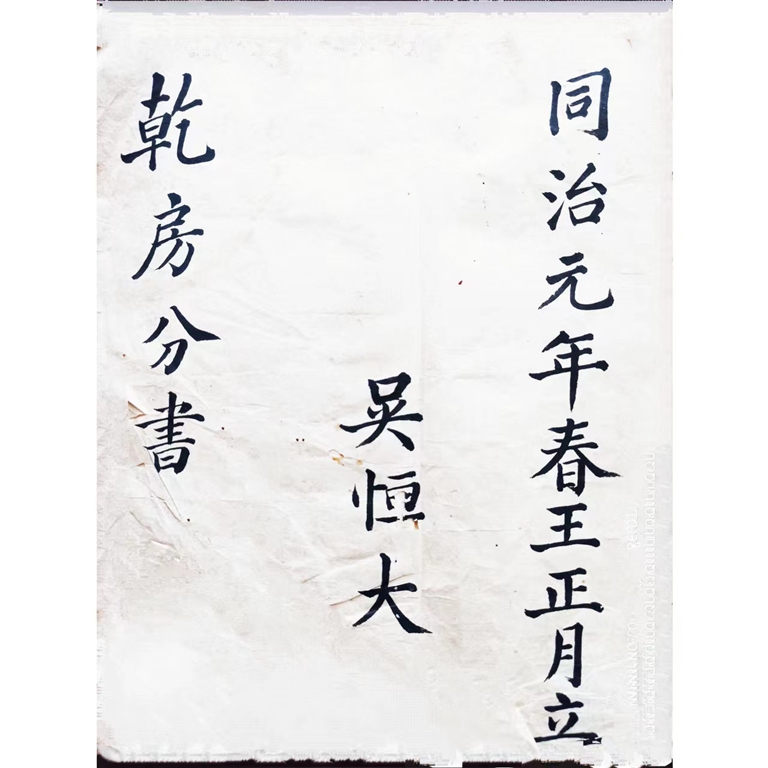 同治元年春王正月立
吴恒大
乾房分書